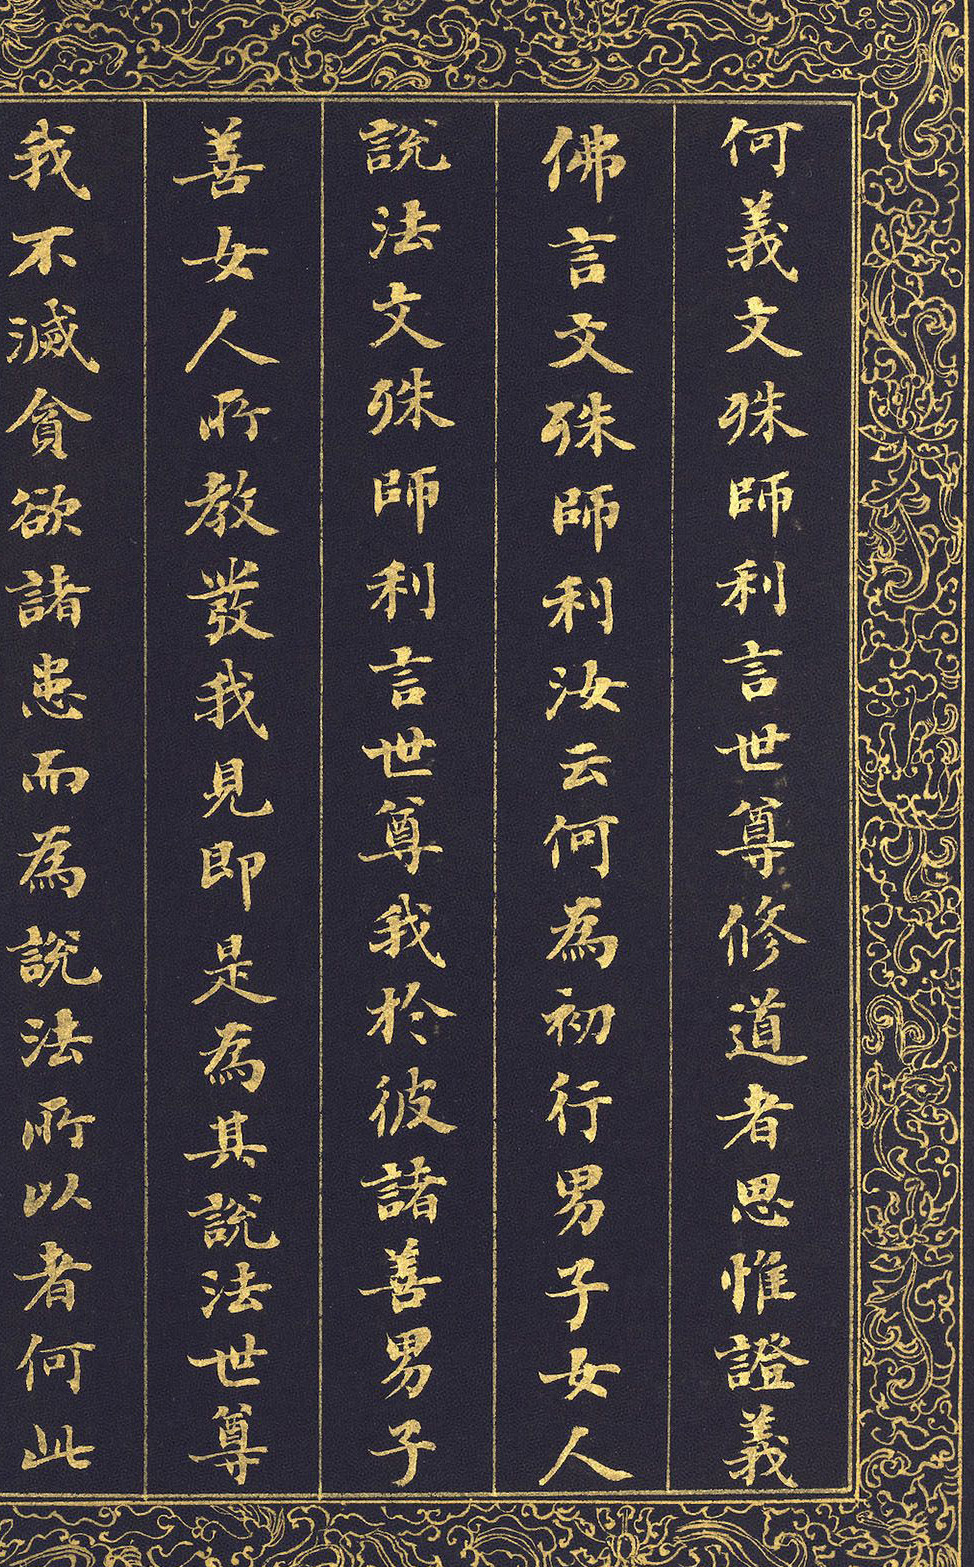 何義文殊師利言世尊修道者思惟證義
佛言文殊師利汝云何為初行男子女人
說法文殊師利言世尊我於彼諸善男子
善女人所教發我見即是為其說法世尊
我不滅貪欲諸患而為說法所以者何此